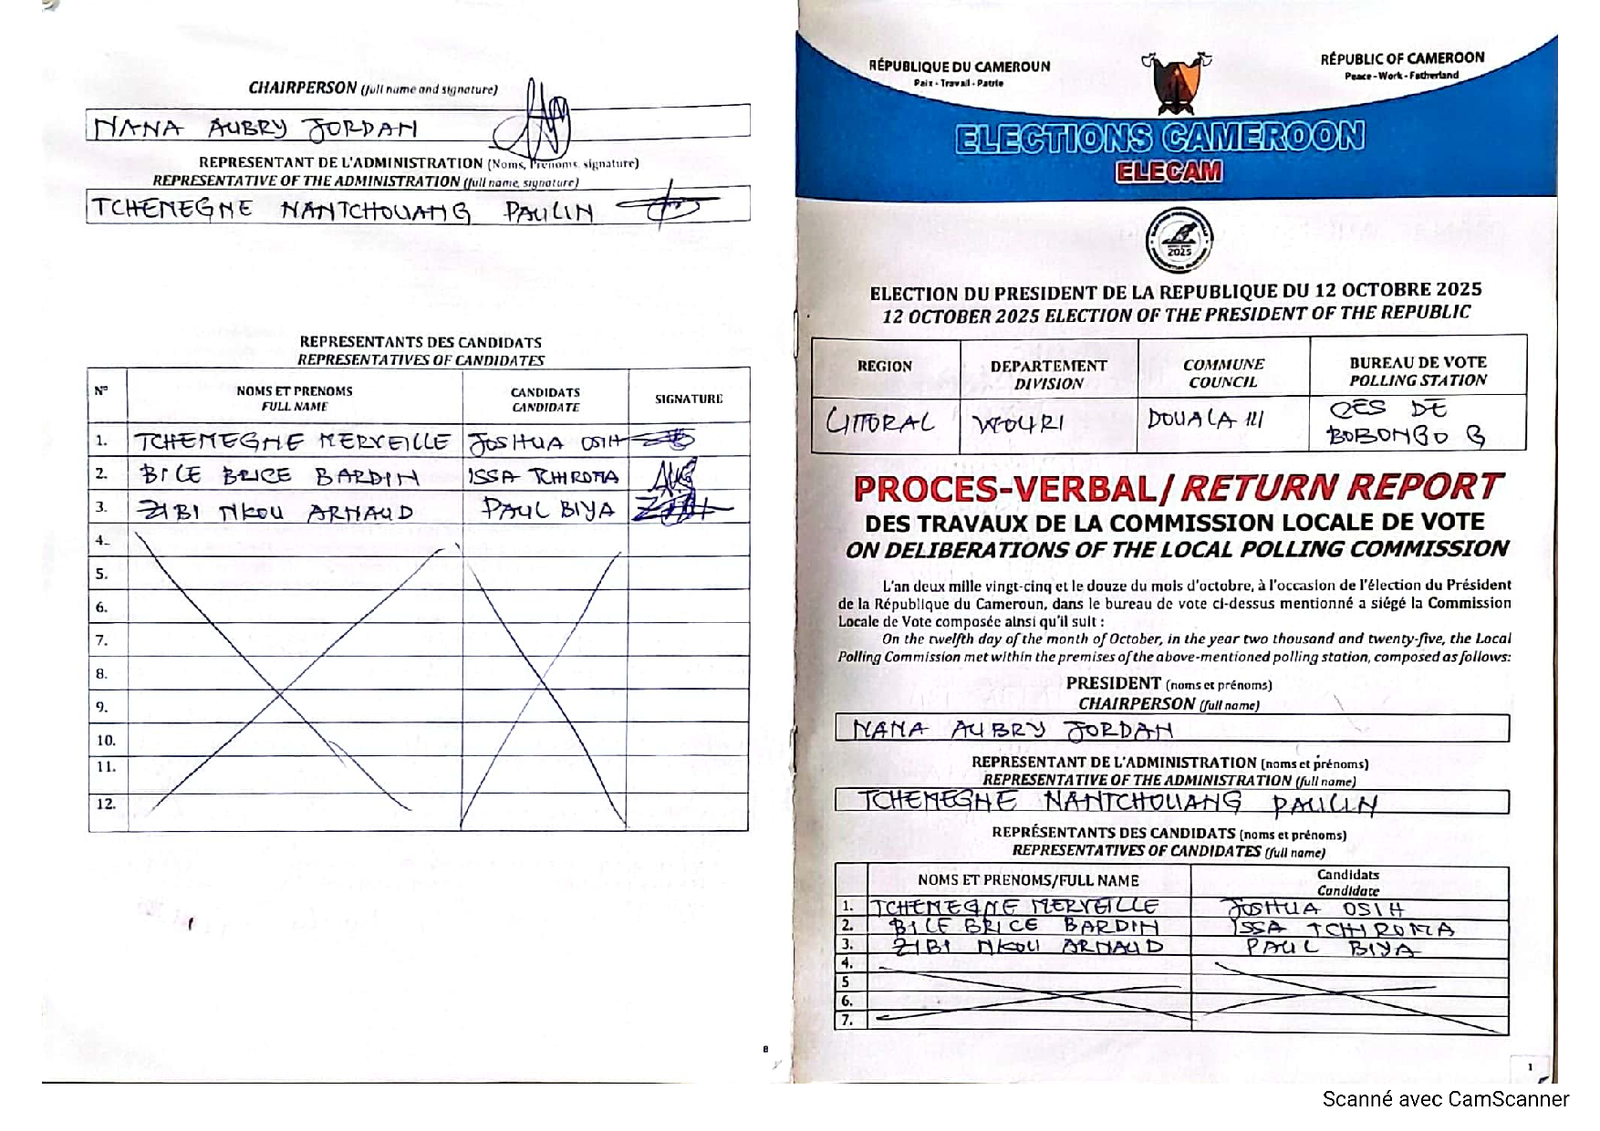 CHAIRPERSON (full name and signature)
NANA AUBRY JORDAN
REPRESENTANT DE L'ADMINISTRATION (Noms, Prénoms, signature)
REPRESENTATIVE OF THE ADMINISTRATION (full name, signature)
TCHEMEGNE NANTCHOUANG PAULIN
REPRESENTANTS DES CANDIDATS
REPRESENTATIVES OF CANDIDATES
N° NOMS ET PRENOMS CANDIDATS SIGNATURE
FULL NAME CANDIDATE
1. TCHEMEGNE MERVEILLE JOSHUA OSIH
2. BILE BRICE BARDIN ISSA TCHIROMA
3. ZIBI NKOU ARNAUD PAUL BIYA
4.
5.
6.
7.
8.
9.
10.
11.
12.
8
RÉPUBLIQUE DU CAMEROUN
Paix - Travail - Patrie
RÉPUBLIC OF CAMEROON
Peace - Work - Fatherland
ELECTIONS CAMEROON
ELECAM
2025
ELECTION DU PRESIDENT DE LA REPUBLIQUE DU 12 OCTOBRE 2025
12 OCTOBER 2025 ELECTION OF THE PRESIDENT OF THE REPUBLIC
REGION DEPARTEMENT COMMUNE BUREAU DE VOTE
DIVISION COUNCIL POLLING STATION
LITTORAL WOURI DOUALA III QES DE
BOBONGO G
PROCES-VERBAL/ RETURN REPORT
DES TRAVAUX DE LA COMMISSION LOCALE DE VOTE
ON DELIBERATIONS OF THE LOCAL POLLING COMMISSION
L'an deux mille vingt-cinq et le douze du mois d'octobre, à l'occasion de l'élection du Président
de la République du Cameroun, dans le bureau de vote ci-dessus mentionné a siégé la Commission
Locale de Vote composée ainsi qu'il suit :
On the twelfth day of the month of October, in the year two thousand and twenty-five, the Local
Polling Commission met within the premises of the above-mentioned polling station, composed as follows:
PRESIDENT (noms et prénoms)
CHAIRPERSON (full name)
NANA AUBRY JORDAN
REPRESENTANT DE L'ADMINISTRATION (noms et prénoms)
REPRESENTATIVE OF THE ADMINISTRATION (full name)
TCHEMEGNE NANTCHOUANG PAULIN
REPRÉSENTANTS DES CANDIDATS (noms et prénoms)
REPRESENTATIVES OF CANDIDATES (full name)
NOMS ET PRENOMS/FULL NAME Candidats
Candidate
1. TCHEMEGNE MERVEILLE JOSHUA OSIH
2. BILE BRICE BARDIN ISSA TCHIROMA
3. ZIBI NKOU ARNAUD PAUL BIYA
4.
5
6.
7.
1
Scanné avec CamScanner